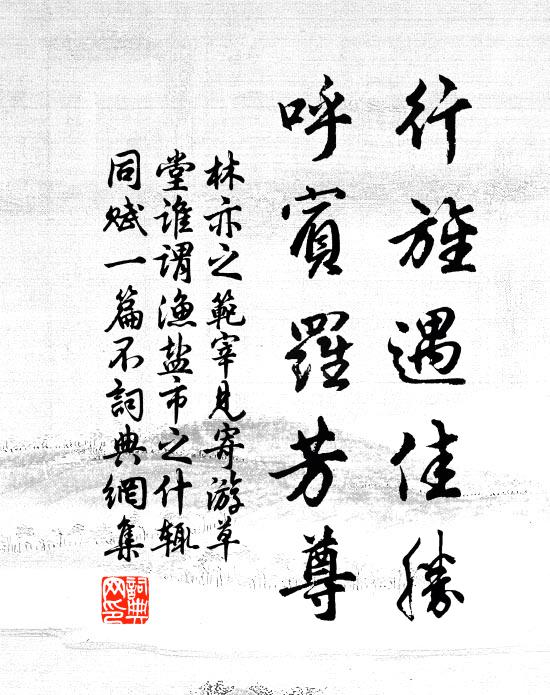 行旌遇佳勝
呼賓羅芳尊
林亦之範宰見寄游草
堂誰謂漁盐市之什輒
同赋一篇不詞典網集
詞典網印